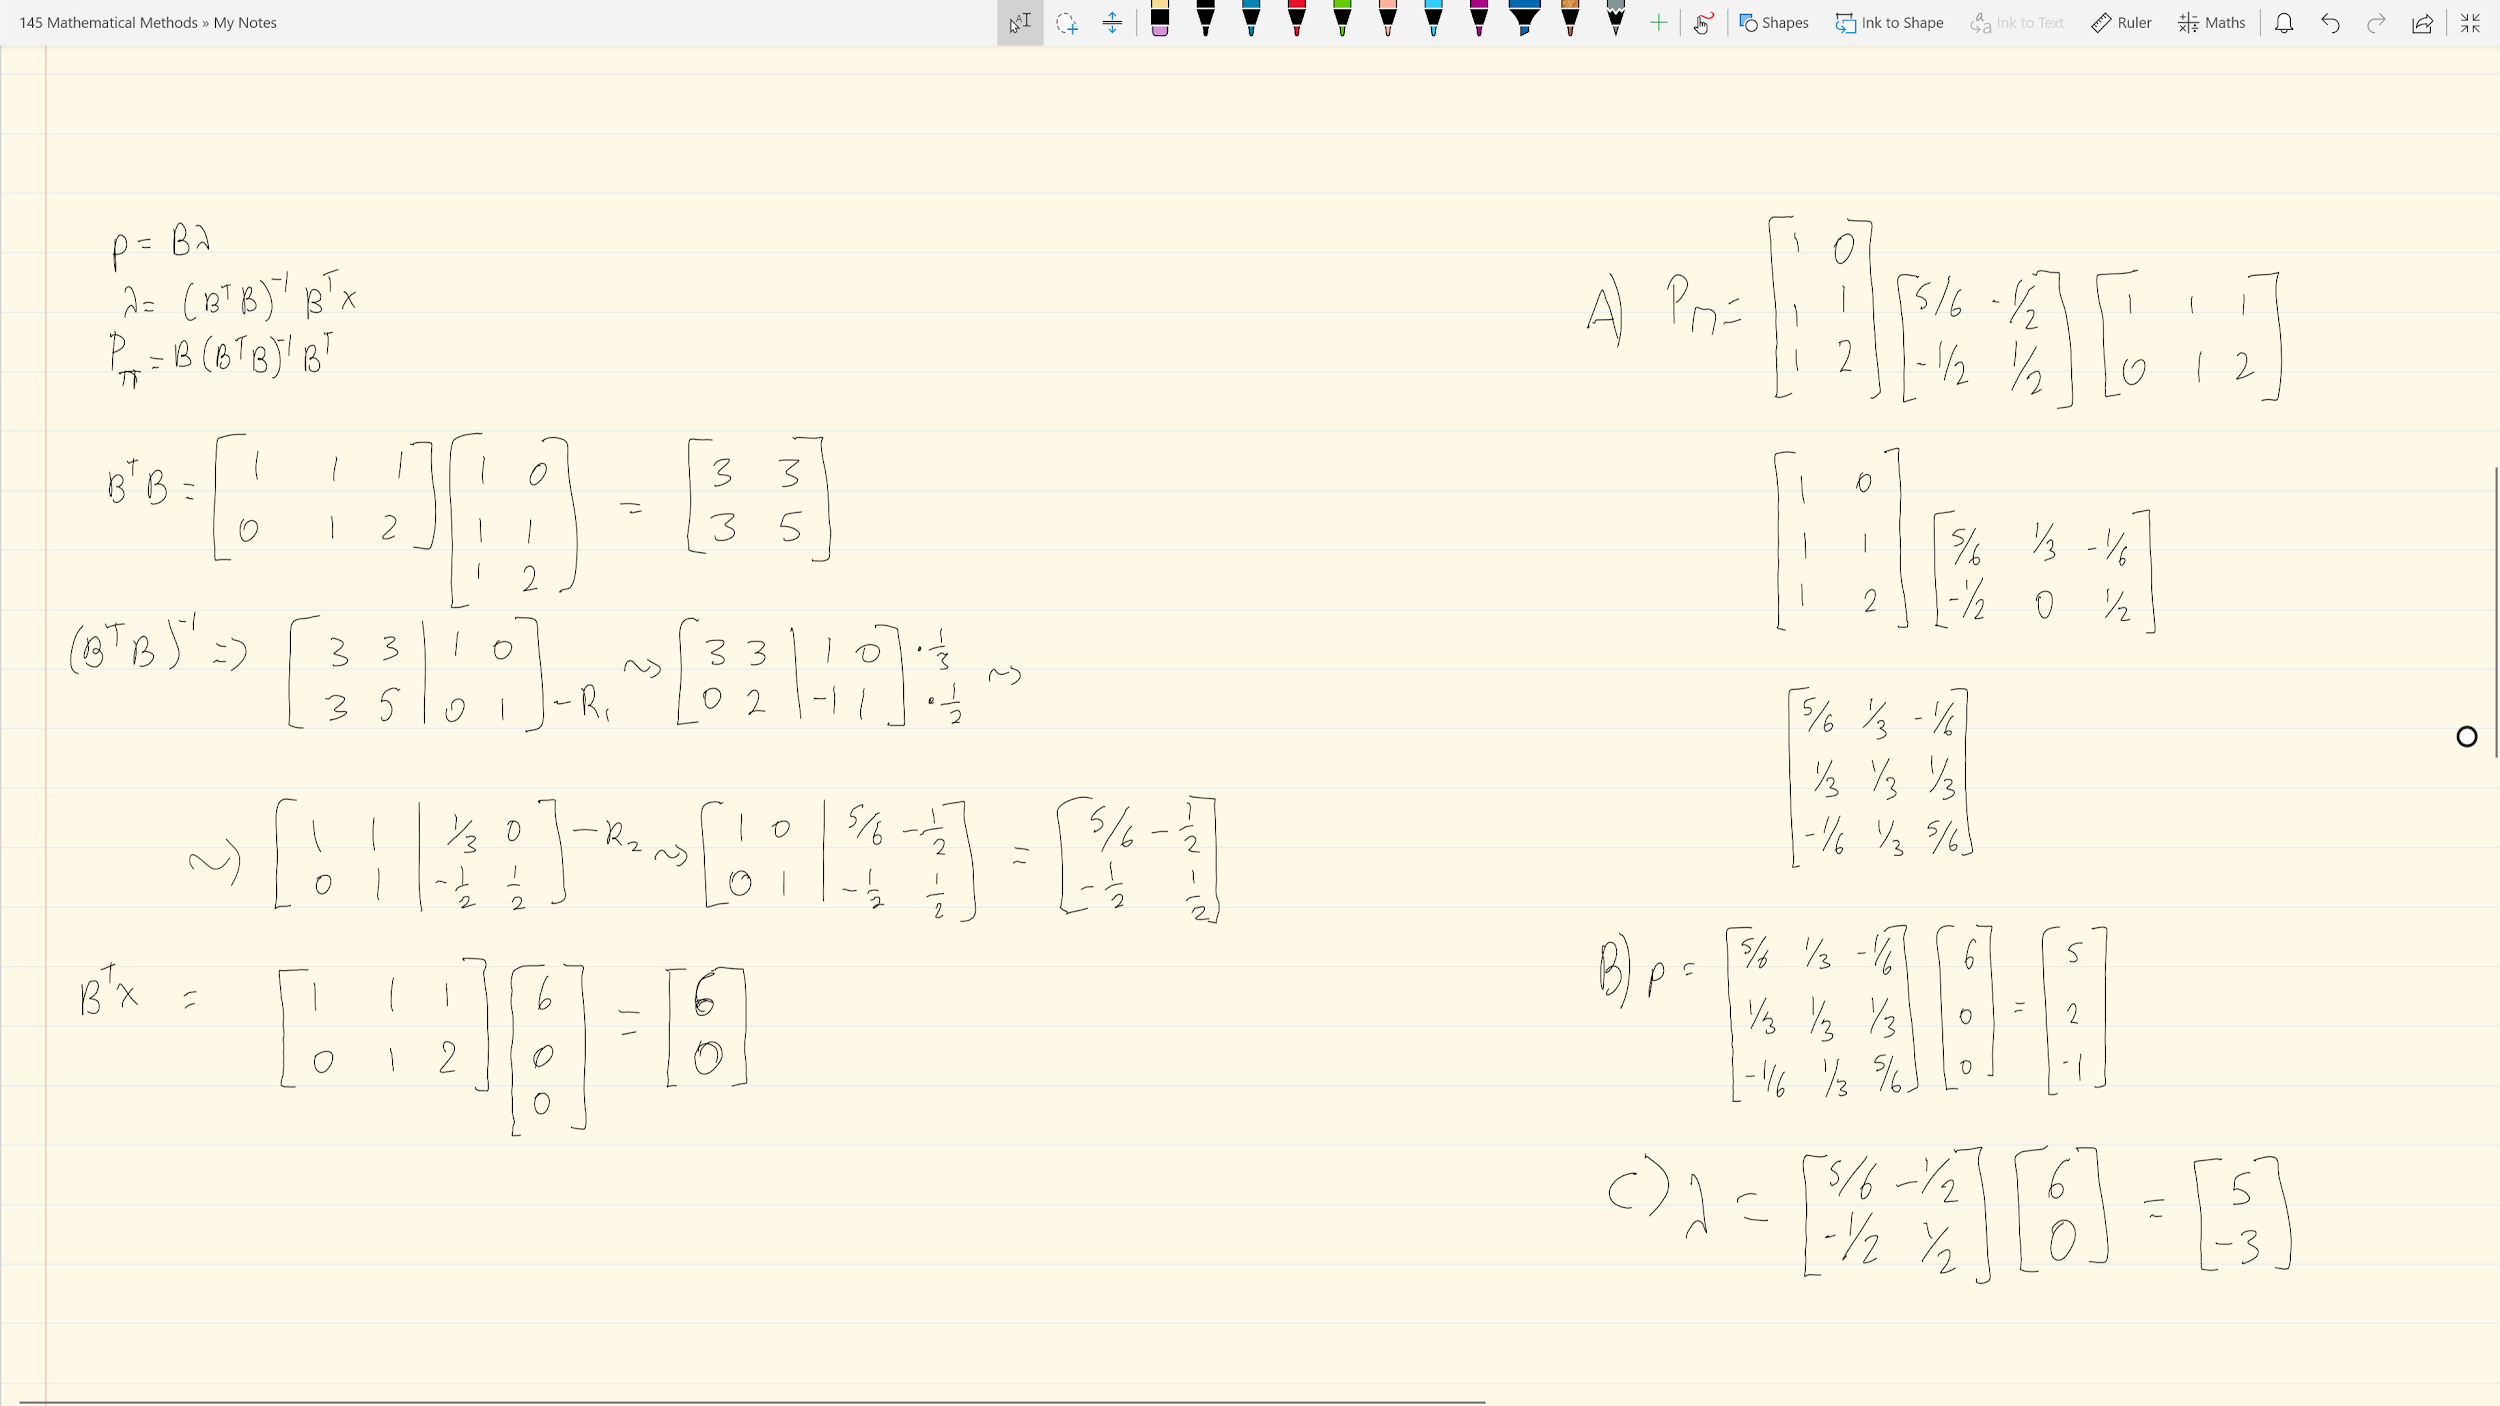 145 Mathematical Methods » My Notes
Shapes Ink to Shape Ink to Text Ruler Maths
p = Bλ
λ = (BᵀB)⁻¹ Bᵀx
P_π = B(BᵀB)⁻¹Bᵀ
BᵀB = [1 1 1; 0 1 2] [1 0; 1 1; 1 2] = [3 3; 3 5]
(BᵀB)⁻¹ => [3 3 | 1 0; 3 5 | 0 1] -R₁ ~> [3 3 | 1 0; 0 2 | -1 1] ·1/3 ·1/2 ~>
~> [1 1 | 1/3 0; 0 1 | -1/2 1/2] -R₂ ~> [1 0 | 5/6 -1/2; 0 1 | -1/2 1/2] = [5/6 -1/2; -1/2 1/2]
Bᵀx = [1 1 1; 0 1 2] [6; 0; 0] = [6; 0]
A) P_π = [1 0; 1 1; 1 2] [5/6 -1/2; -1/2 1/2] [1 1 1; 0 1 2]
[1 0; 1 1; 1 2] [5/6 1/3 -1/6; -1/2 0 1/2]
[5/6 1/3 -1/6; 1/3 1/3 1/3; -1/6 1/3 5/6]
B) p = [5/6 1/3 -1/6; 1/3 1/3 1/3; -1/6 1/3 5/6] [6; 0; 0] = [5; 2; -1]
C) λ = [5/6 -1/2; -1/2 1/2] [6; 0] = [5; -3]